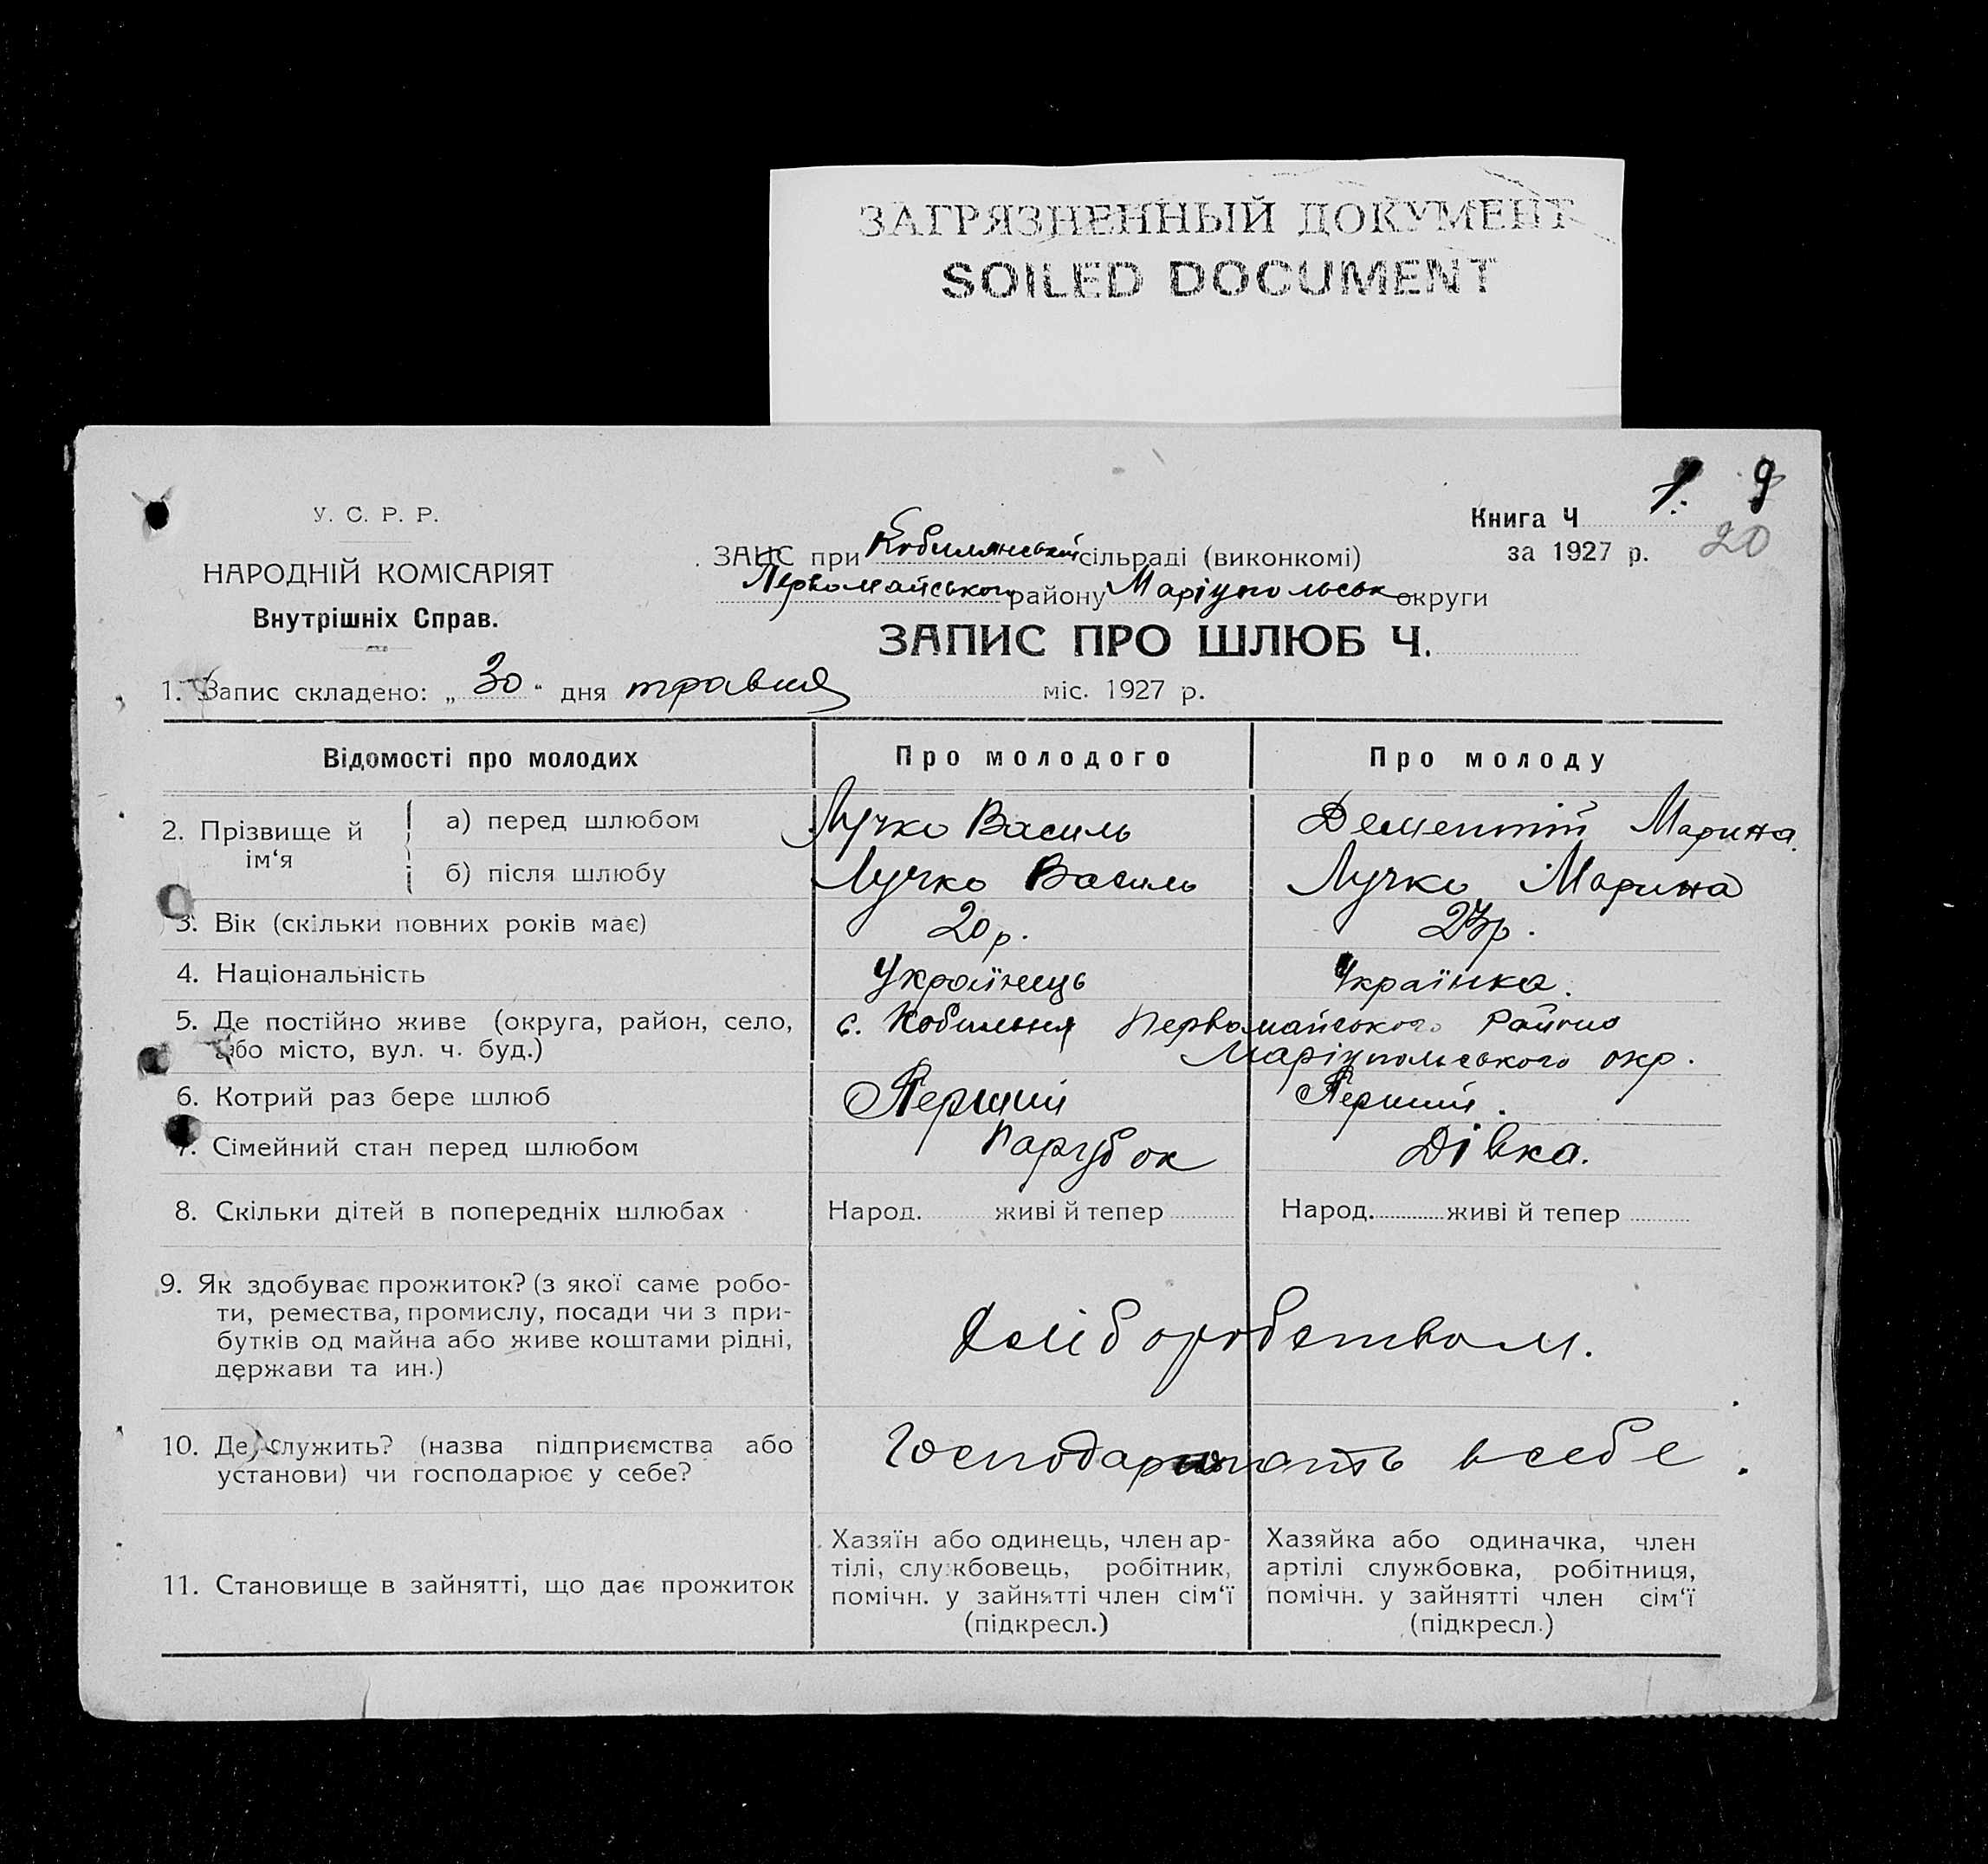 ЗАГРЯЗНЕННЫЙ ДОКУМЕНТ
SOILED DOCUMENT
У. С. Р. Р.
НАРОДНІЙ КОМІСАРІЯТ
Внутрішніх Справ.
Книга Ч 1. 9
за 1927 р. 20
ЗАГС при Кобилянській сільраді (виконкомі)
Первомайського району Маріупольськ округи
ЗАПИС ПРО ШЛЮБ Ч.
1. Запис складено: „ 30 “ дня травня міс. 1927 р.
Відомості про молодих Про молодого Про молоду
2. Прізвище й ім‘я
а) перед шлюбом Лучко Василь Дементій Марина.
б) після шлюбу Лучко Василь Лучко Марина
3. Вік (скільки повних років має) 20 р. р.
4. Національність Українець Українка.
5. Де постійно живе (округа, район, село, с. Кобильня Первомайського Району
або місто, вул. ч. буд.) Маріупольського окр.
6. Котрий раз бере шлюб Перший Перший.
7. Сімейний стан перед шлюбом Парубок Дівка.
8. Скільки дітей в попередніх шлюбах Народ. живі й тепер Народ. живі й тепер
9. Як здобуває прожиток? (з якої саме робо-
ти, ремества, промислу, посади чи з при-
бутків од майна або живе коштами рідні,
держави та ин.)
Хліборобством.
10. Де служить? (назва підприємства або
установи) чи господарює у себе?
Господарюють в себе.
11. Становище в зайнятті, що дає прожиток
Хазяїн або одинець, член ар-
тілі, службовець, робітник,
помічн. у зайнятті член сім‘ї
(підкресл.)
Хазяйка або одиначка, член
артілі службовка, робітниця,
помічн. у зайнятті член сім‘ї
(підкресл.)